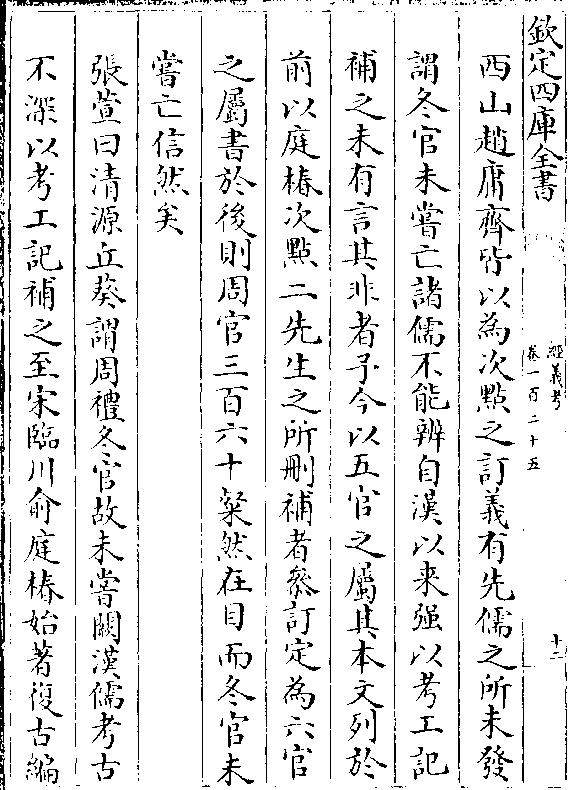 欽定四庫全書
經義考
卷一百二十五
十二
西山趙庸齊皆以為次點之訂義有先儒之所未發
謂冬官未嘗亡諸儒不能辨自漢以来强以考工記
補之未有言其非者予今以五官之屬其本文列於
前以庭椿次點二先生之所刪補者叅訂定為六官
之屬書於後則周官三百六十粲然在目而冬官未
嘗亡信然矣
張萱曰清源丘葵謂周禮冬官故未嘗闕漢儒考古
不深以考工記補之至宋臨川俞庭椿始著復古編